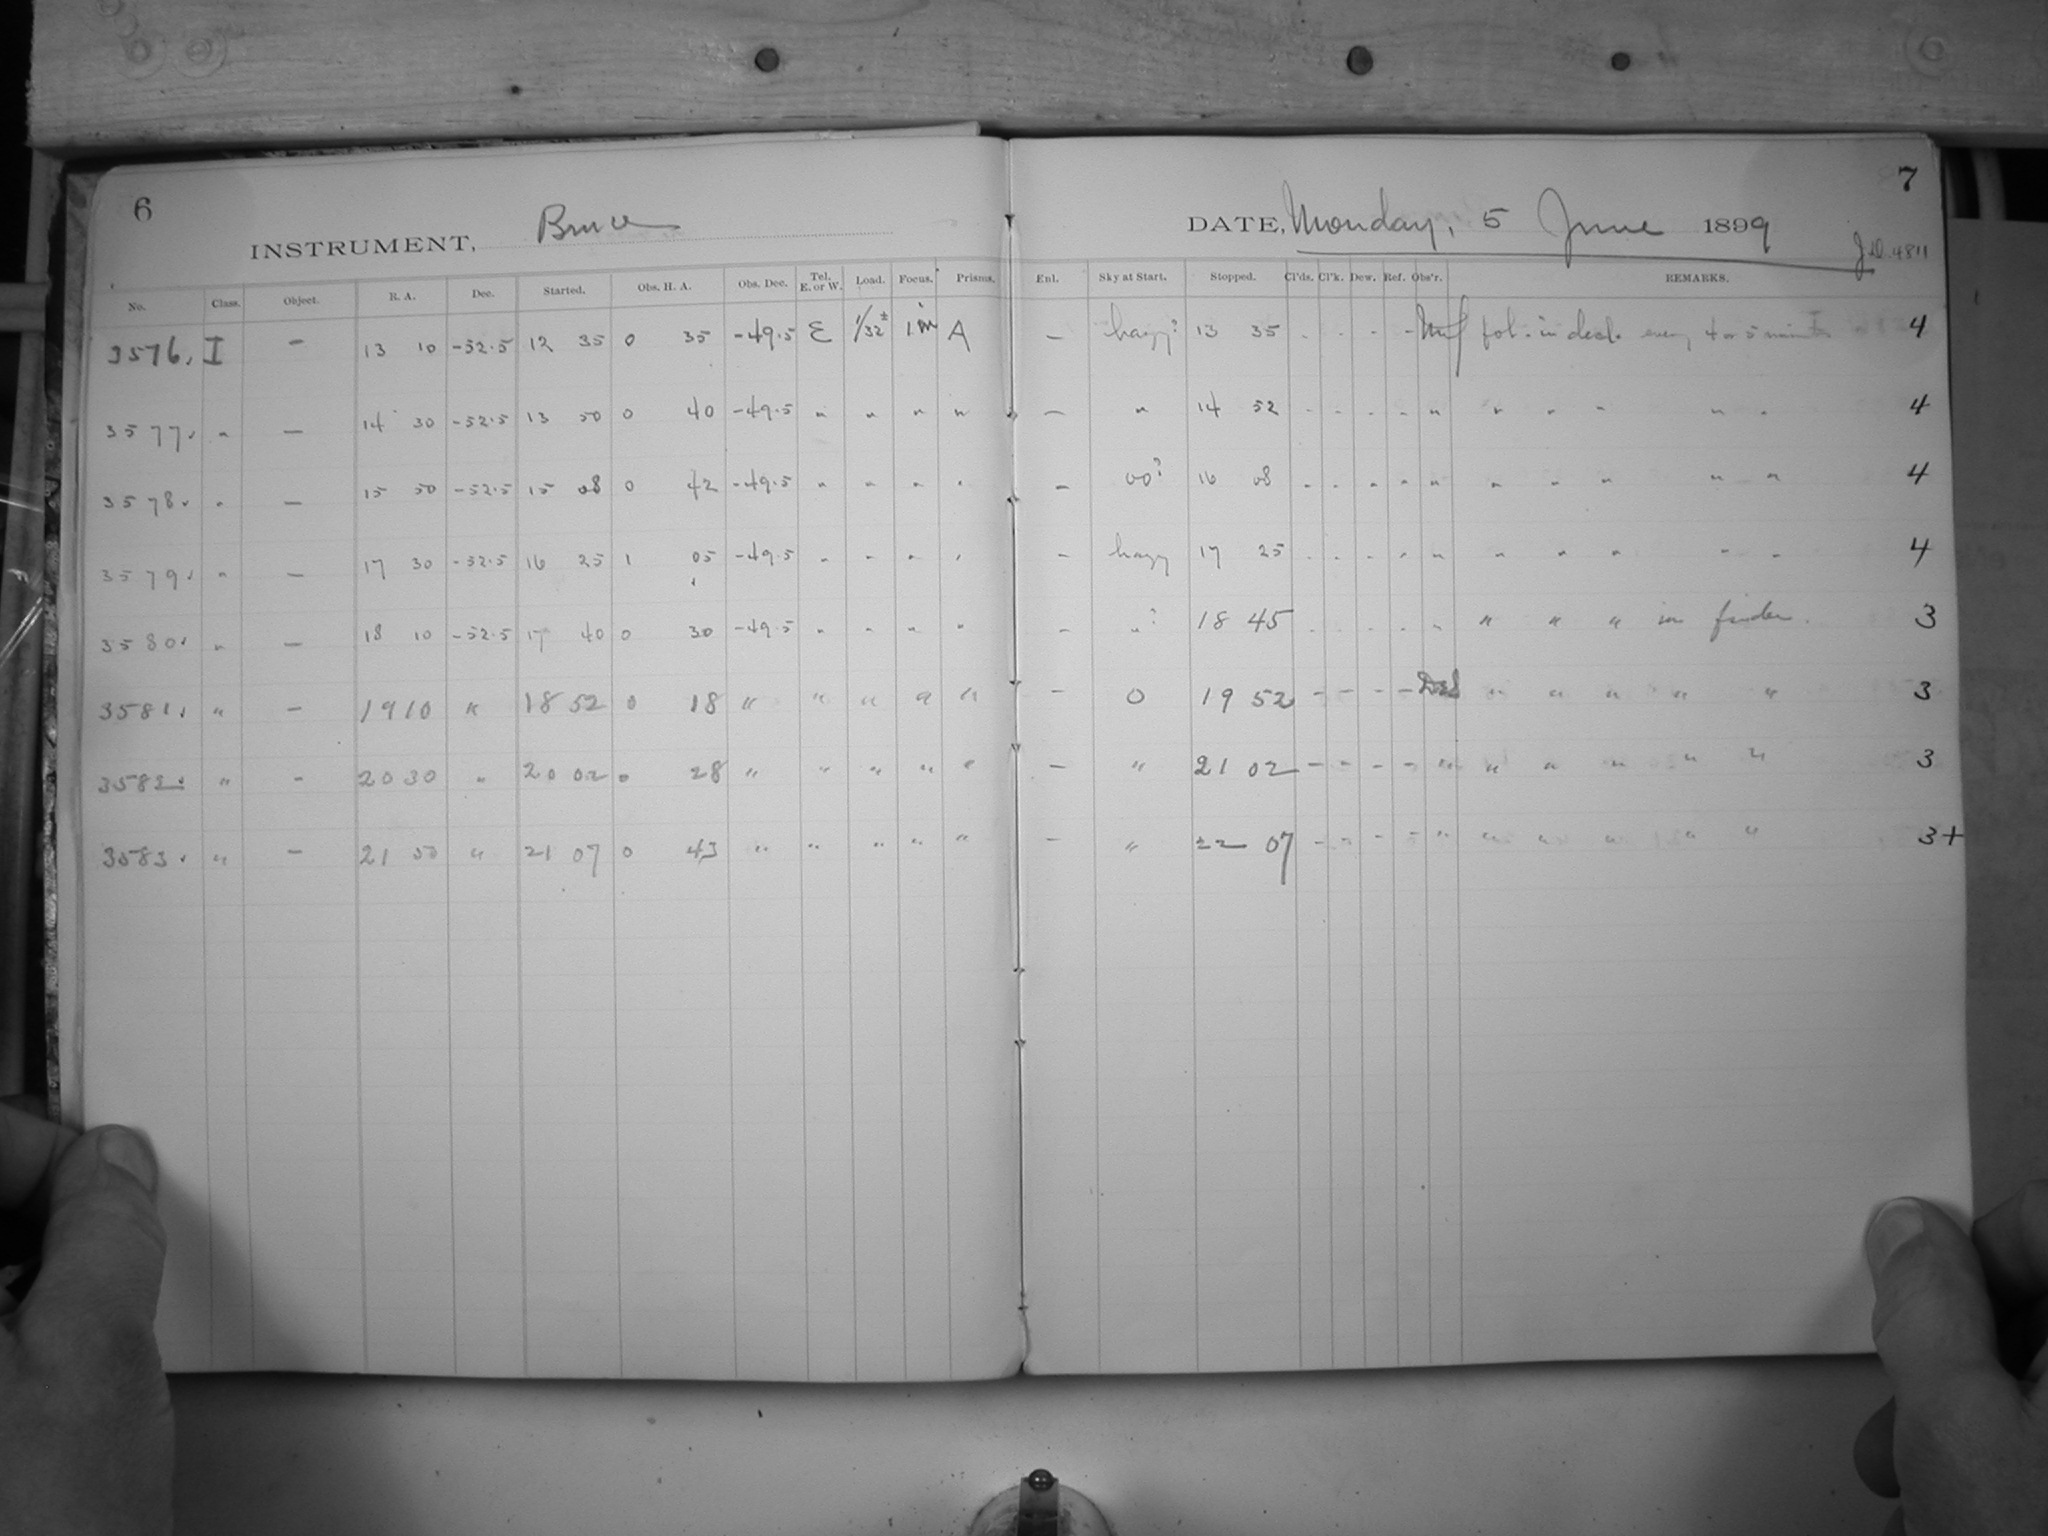 6
INSTRUMENT, Bruce
No. Class. Object. R. A. Dec. Started. Obs. H. A. Obs. Dec. Tel. E. or W. Load. Focus. Prisms.
3576. I — 13 10 -52.5 12 35 0 35 -49.5 E 1/32± 1.m A
3577. " — 14 30 -52.5 13 50 0 40 -49.5 " " " "
3578. " — 15 50 -52.5 15 08 0 42 -49.5 " " " "
3579. " — 17 30 -52.5 16 25 1 05 -49.5 " " " "
3580. " — 18 10 -52.5 17 40 0 30 -49.5 " " " "
3581. " — 19 10 " 18 52 0 18 " " " " "
3582. " - 20 30 " 20 02 0 28 " " " " "
3583. " — 21 50 " 21 07 0 43 " " " " "
7
DATE, Monday, 5 June 1899
J.D. 4811
Enl. Sky at Start. Stopped. Cl'ds. Cl'k. Dew. Ref. Obs'r. REMARKS.
— hazy? 13 35 - - - - fol. in decl. every 4 or 5 minutes 4
— " 14 52 - - - - " " " " " " 4
— 00? 16 08 - - - - " " " " " " 4
— hazy 17 25 - - - - " " " " " " 4
— "? 18 45 - - - - " " " " in finder. 3
— 0 19 52 - - - - " " " " " 3
— " 21 02 - - - - " " " " " " 3
— " 22 07 - - - - " " " " " " 3+